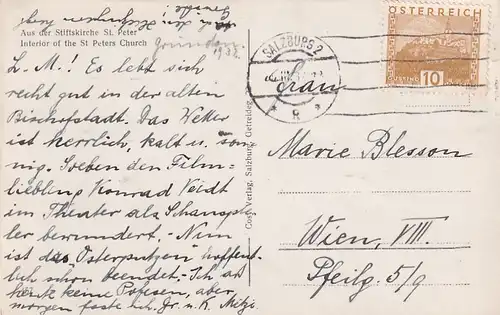 nach den Festspielen nach
Genuße!
Aus der Stiftskirche St. Peter
Interior of the St Peters Church
Gründon.
1932
L. M.! Es lebt sich
recht gut in der alten
Bischofstadt. Das Wetter
ist herrlich, kalt u. son-
nig. Soeben den Film-
liebling Konrad Veidt
im Theater als Schauspie
ler bewundert. - Nun
ist das Osterputzen hoffent-
lich schon beendet. - Ich aß
heute keine Pofesen, aber
morgen faste ich. Gr. u. K. Mitzi
Cosy-Verlag, Salzburg, Getreideg.
SALZBURG 2
8
ÖSTERREICH
10
Frau
Marie Blesson
Wien, VIII.
Pfeilg. 5/9